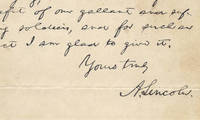 fit of our gallant and suf
g soldiers, and for such an
ct I am glad to give it.
Yours truly
A. Lincoln.